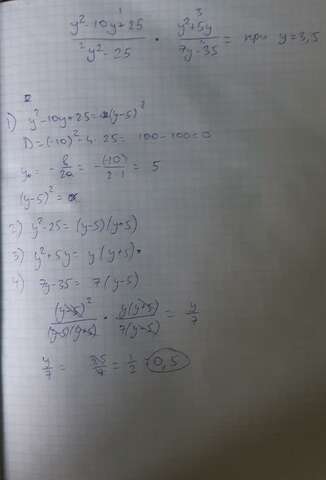 y²-10y+25 / y²-25 · y²+5y / 7y-35 = при y=3,5
1) y²-10y+25=(y-5)²
D=(-10)²-4·25= 100-100=0
y₀= -b/2a = -(-10)/2·1 = 5
(y-5)²=
2) y²-25=(y-5)(y+5)
3) y²+5y= y(y+5)
4) 7y-35= 7(y-5)
(y-5)²/(y-5)(y+5) · y(y+5)/7(y-5) = y/7
y/7 = 3,5/7 = 1/2 = 0,5